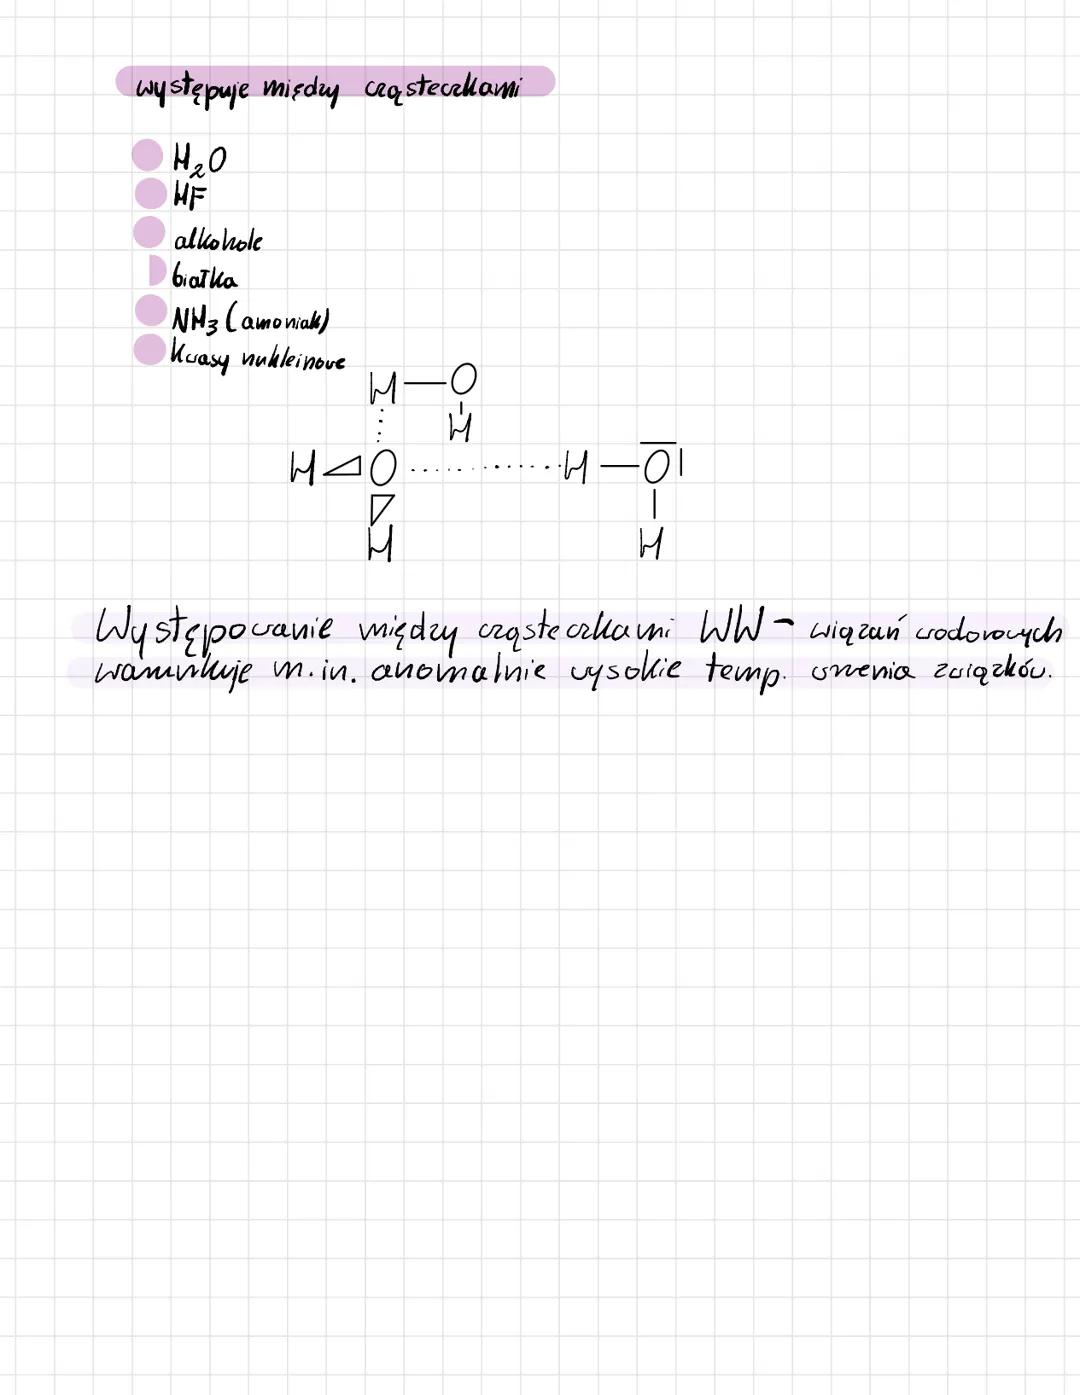 występuje między cząsteczkami
H₂O
HF
alkohole
białka
NH₃ (amoniak)
kwasy nukleinowe
H—O
H
H O ........... H—O|
H H
Występowanie między cząsteczkami WW - wiązań wodorowych
warunkuje m.in. anomalnie wysokie temp. wrzenia związków.